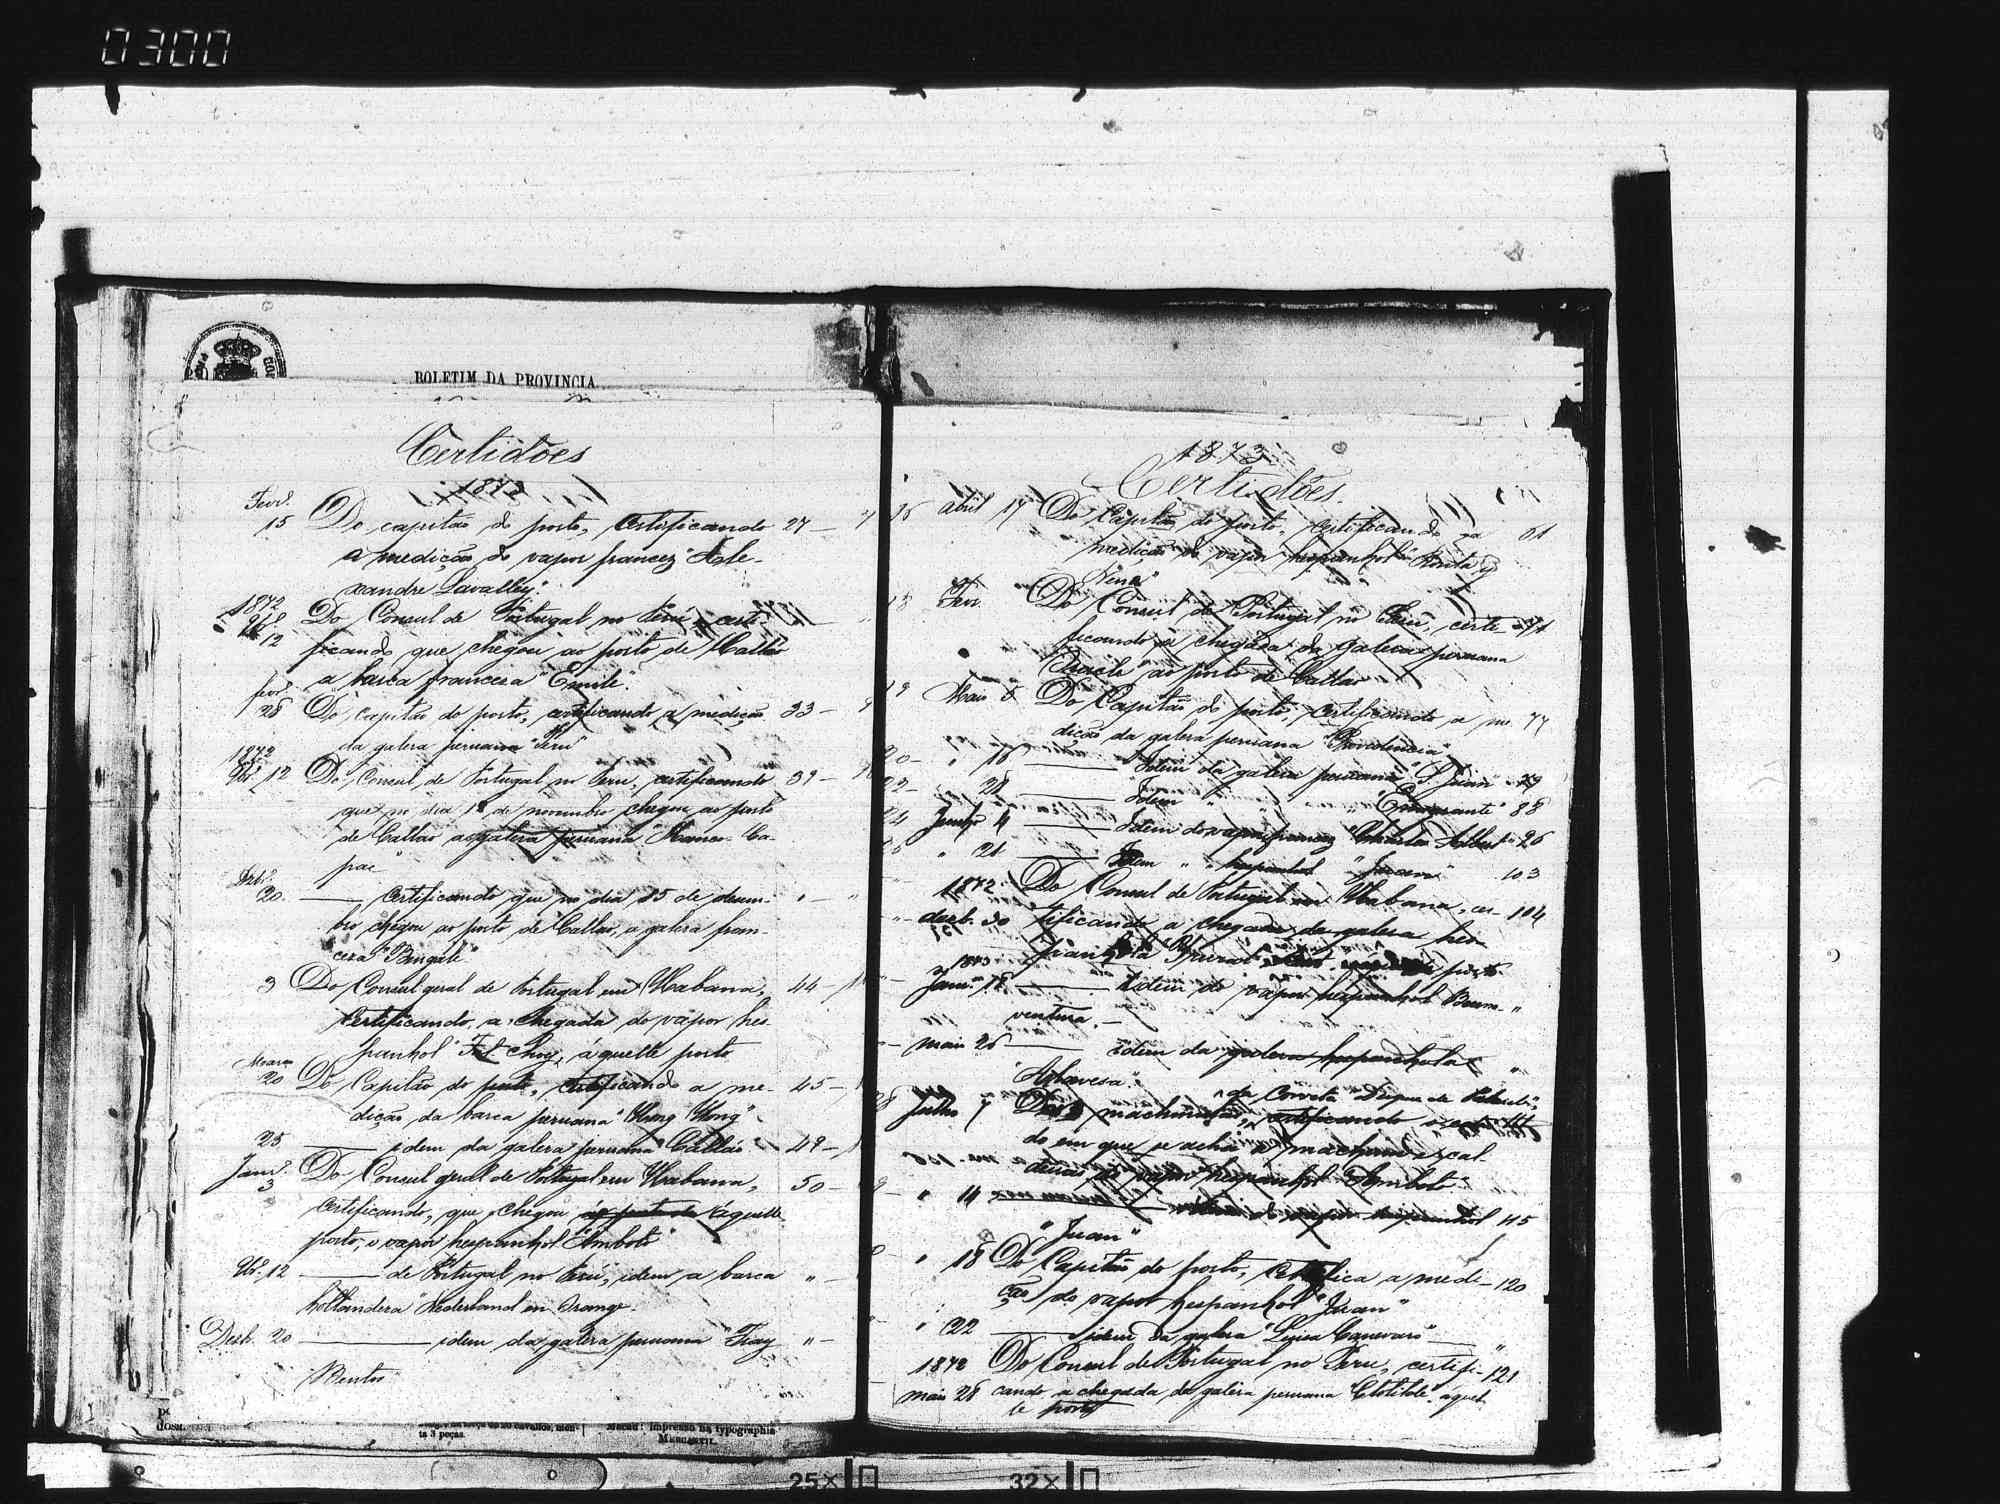 0300
BOLETIM DA PROVINCIA
Certidões
1873
Fevr.
15 Do capitão do porto, certificando 27
a medição do vapor francez "Ale-
xandre Lavalley".
1872
12 Do Consul de Portugal no Perú, certi-
ficando que chegou ao porto de Callao
a barca franceza "Emile".
fevr.
28 Do capitão do porto, certificando a medição 33
da galera peruana "Perú"
1872
12 Do Consul de Portugal no Peru, certificando 39
que no dia de novembro chegou ao porto
de Callao a galera peruana "Manco Ca-
pac"
20. certificando que no dia 15 de dezem-
bro chegou ao porto de Callao, a galera fran-
ceza "Bengali".
3 Do Consul geral de Portugal em Habana, 44
certificando a chegada do vapor hes-
panhol Choy, áquelle porto
20 Do Capitão do porto, certificando a me- 45
dição da barca peruana "Hong Kong"
25 idem da galera peruana "Callao" 49
Janr.
3 Do Consul geral de Portugal em Habana, 50
certificando, que chegou áquelle
porto, o vapor hespanhol "Amboto"
12 de Portugal no Perú, idem a barca "
hollandeza "Nederland en Orange.
Dezb. 20 idem da galera peruana "Fray "
Bentos
ta 3 peças.
Macau: Impresso na typographia
MERCANTIL.
1873
Certidões
Abril 17 Do Capitão do porto, certificando a 61
medição do vapor hespanhol "Rosita y
Nena"
Fevr. Do Consul de Portugal no Perú, certi- 71
ficando a chegada da galera peruana
ao porto de Callao
Maio 5 Do Capitão do porto, certificando a me- 77
dição da galera peruana "Providencia"
" 16 Idem da galera peruana "S. Juan" 79
" 28 Idem " " "Emigrante" 88
Junho 4 Idem do vapor francez "Charles Albert" 96
" 21 Idem " " hespanhol "Juan" 103
1872 Do Consul de Portugal em Habana, cer- 104
dezb. 30 tificando a chegada da galera hes-
panhola porto
1873
Janr. 18 Idem do vapor hespanhol Buena- "
ventura.
maio 26 idem da galera hespanhola "
"Alavesa".
da Corveta "Duque de Palmella",
Julho 7 Do machinista, certificando o esta-
do em que se acha a machina e cal-
deiras do vapor hespanhol "Amboto"
" 14 vapor hespanhol 115
"Juan"
" 18 Do Capitão do porto, certifica a medi- 120
ção do vapor hespanhol "Juan"
" 22 idem da galera "Luisa Canevaro" "
1873 Do Consul de Portugal no Peru, certifi- 121
maio 28 cando a chegada da galera peruana "Clotilde" áquel-
le porto
25X
32X